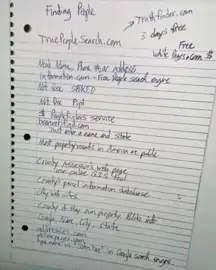 Finding People
Truthfinder.com
3 days free
TruePeopleSearch.com
Free
White Pages.com $
Need Name, Phone # or address
Information.com - Free People search engine
Not Use SPOKEO
Not Use Pipl
$ PeopleFinders service
been verified.com
Just enter a name and state
Most property records in America are public
County Assessor's web page
use online GIS tool
County's parcel information database
City web sites
County & Map own property. Public info
Google Name, City, State
addresses.com
yellowpages.com
type name in "John Doe" in Google search engine